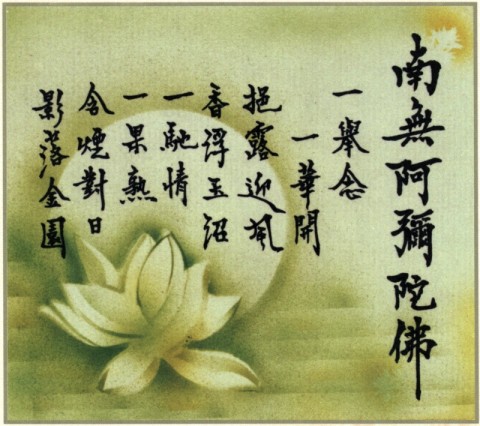 南無阿彌陀佛
一舉念
一華開
挹露迎風
香浮玉沼
一馳情
一果熟
含煙對日
影落金園